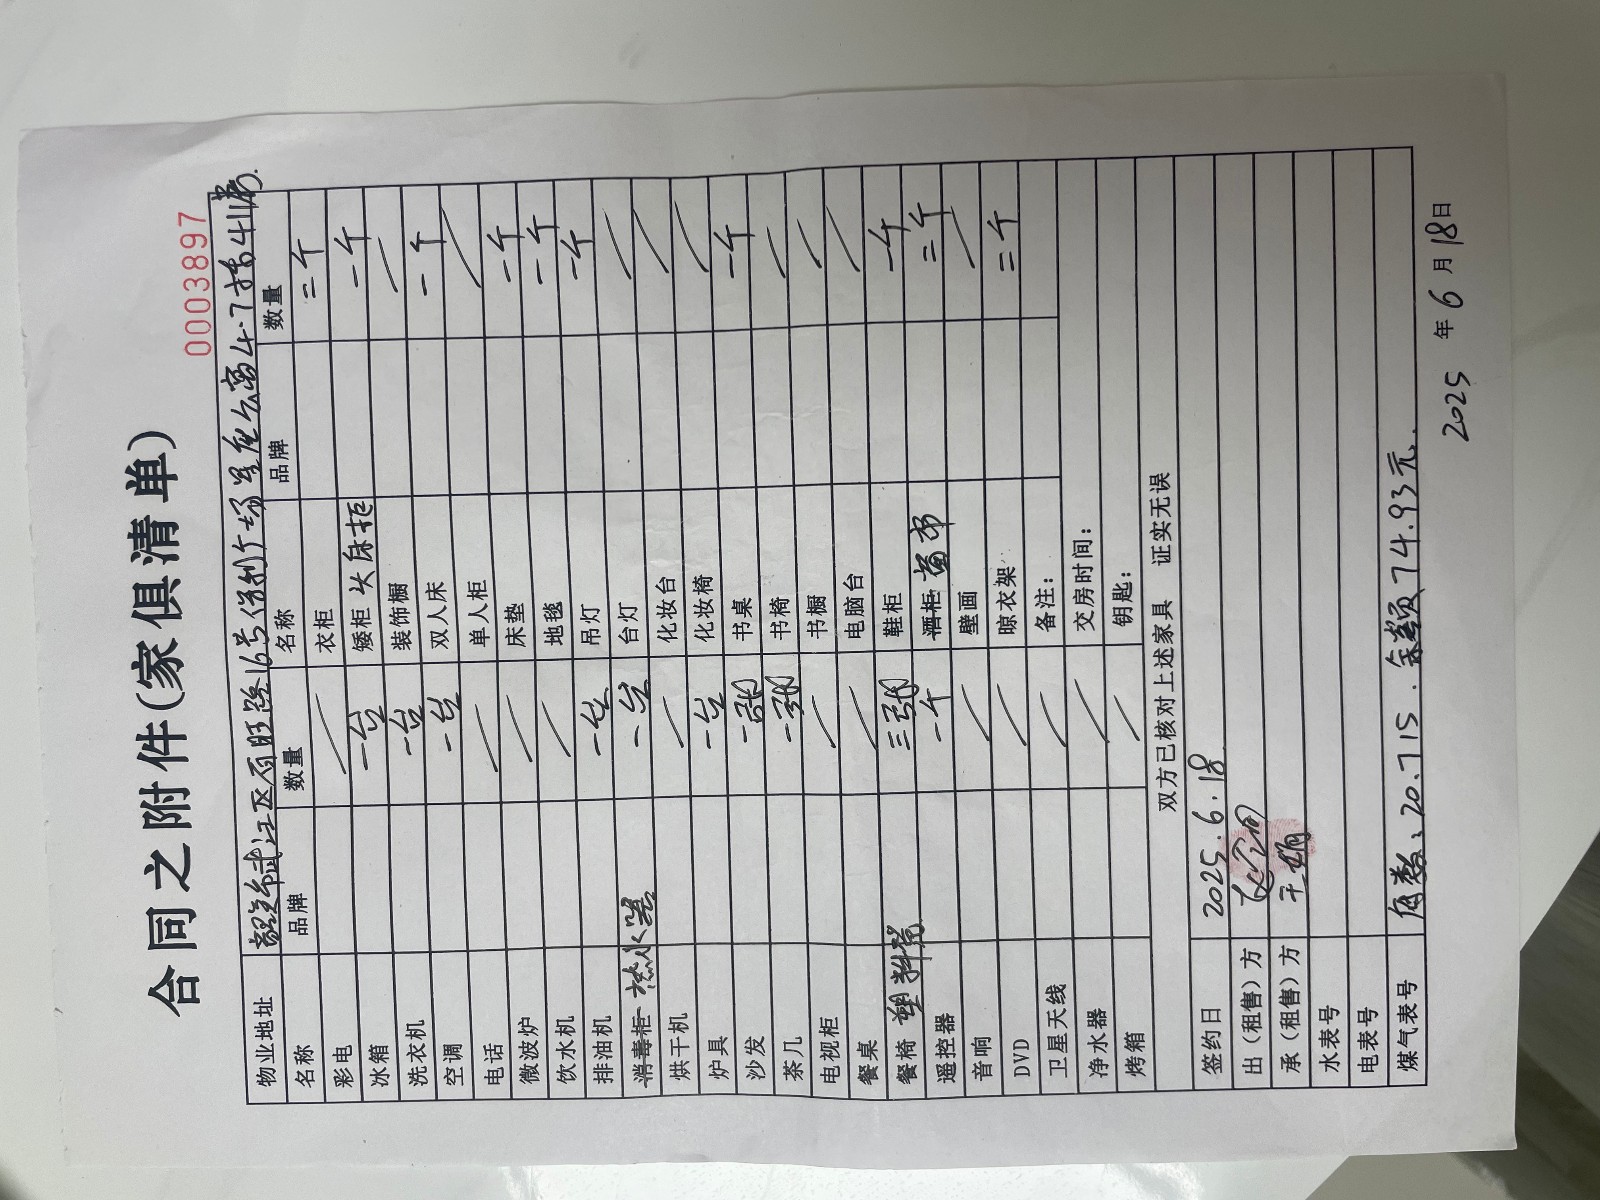 0003897
合同之附件(家俱清单)
物业地址 韶关市武江区百旺路16号保利广场星座公寓4.7栋411房.
名称 品牌 数量 名称 品牌 数量
彩电 ／ 衣柜 二个
冰箱 一台 矮柜 床头柜 一个
洗衣机 一台 装饰橱 ／
空调 一台 双人床 一个
电话 ／ 单人柜 ／
微波炉 ／ 床垫 一个
饮水机 ／ 地毯 一个
排油机 一台 吊灯 一个
消毒柜 热水器 一台 台灯 ／
烘干机 ／ 化妆台 ／
炉具 一台 化妆椅 ／
沙发 一张 书桌 一个
茶几 一张 书椅 ／
电视柜 ／ 书橱 ／
餐桌 ／ 电脑台 ／
餐椅 塑料凳 三张 鞋柜 一个
遥控器 一个 酒柜 窗帘 二个
音响 ／ 壁画 ／
DVD ／ 晾衣架 二个
卫星天线 ／ 备注：
净水器 ／ 交房时间：
烤箱 ／ 钥匙：
双方已核对上述家具 证实无误
签约日 2025.6.18
出（租售）方
承（租售）方
水表号
电表号
煤气表号 底数：20.715. 余额74.93元.
2025 年 6 月 18 日